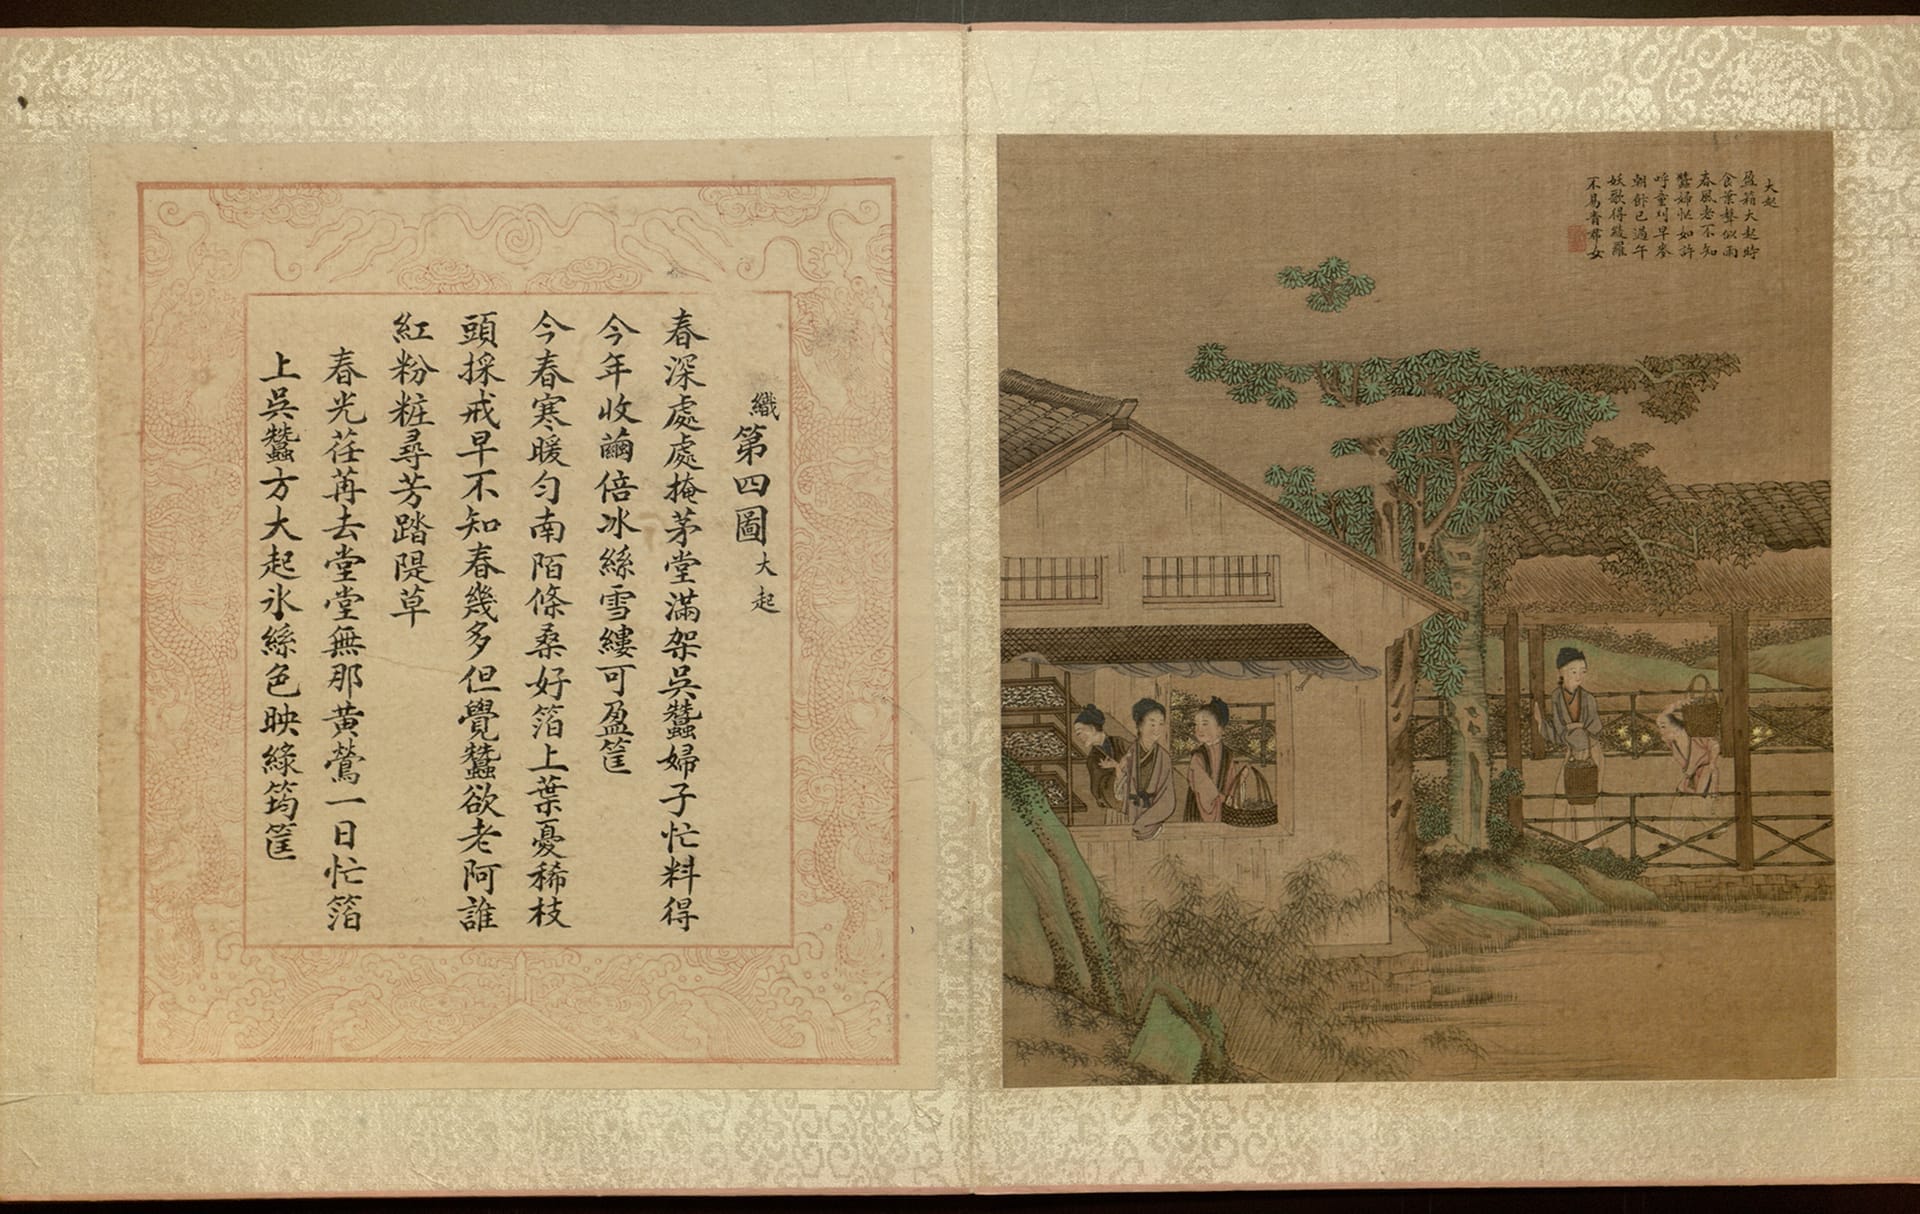 大起
盈箱大起時
食葉聲似雨
春風老不知
蠶婦忙如許
呼童刈早麥
朝飰已過午
妖歌得綾羅
不易青帬女
織第四圖 大起
春深處處掩茅堂滿架吳蠶婦子忙料得
今年收繭倍冰絲雪縷可盈筐
今春寒暖勻南陌條桑好箔上葉憂稀枝
頭採戒早不知春幾多但覺蠶欲老阿誰
紅粉粧尋芳踏隄草
春光荏苒去堂堂無那黃鶯一日忙箔
上吳蠶方大起氷絲色映綠筠筐